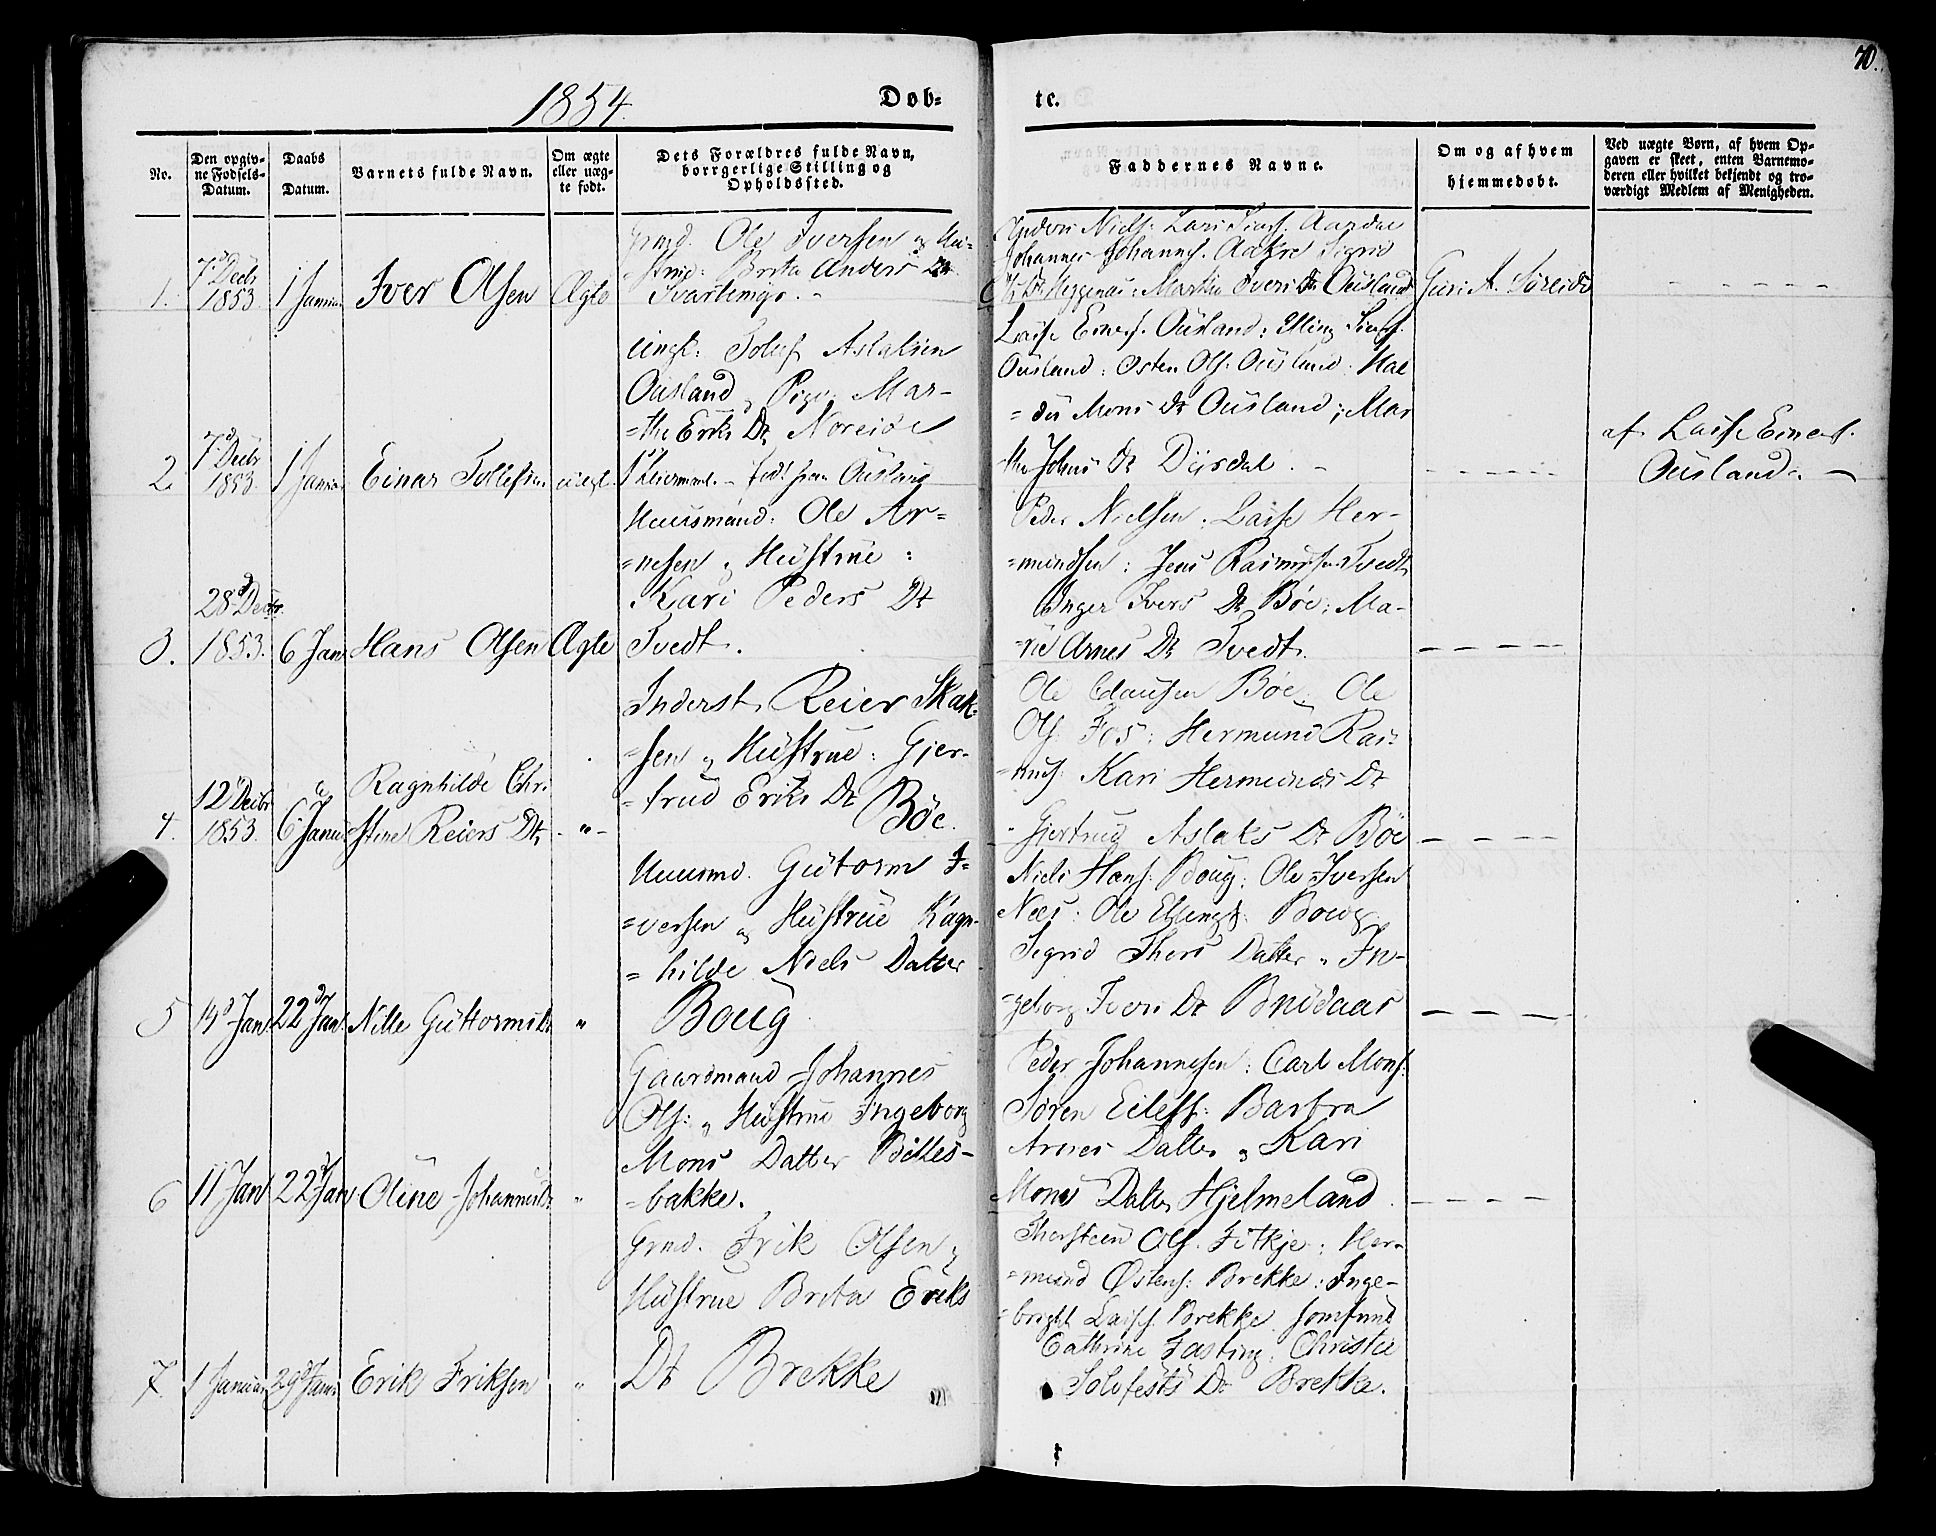 70.
1854.
Døb=
te.
No.
Den opgiv=
ne Fødsels=
Datum.
Daabs
Datum.
Barnets fulde Navn.
Om ægte
eller uæg=
te født.
Dets Forældres fulde Navn,
borrgerlige Stilling og
Opholdssted.
Faddernes Navne.
Om og af hvem
hjemmedøbt.
Ved uægte Børn, af hvem Op=
gaven er skeet, enten Barnemo=
deren eller hvilket bekjendt og tro=
værdigt Medlem af Menigheden.
1.
7d Decbr
1853
1 Januar
Iver Olsen
Ægte
Grmd. Ole Iversen og Hu=
strue: Brita Anders Dt
Svartemyr.
Anders Niels. Lars
Johannes Johanns. Aakre Sigrid
Marthe Ivers Dt Ousland
Guri A. Søreide
2.
7d Decbr
1853
1 Januar
Einar Tollefsen
uægte
Ungk: Tollef Aslaksen
Ousland og Pige Mar=
=the Eriks Dt Noreide
født paa Ousland
Lasse Einers. Ousland: Elling
Ousland: Osten Ols. Ousland:
Mons Dt Ousland; Mar
the Johns Dt Dysdal.
af Lasse Einers.
Ousland.
3.
28d Decbr.
1853.
6 Jan
Hans Olsen
Ægte
Huusmand: Ole Ar=
=nesen og Hustrue:
Kari Peders Dt
Tvedt.
Peder Nielsen. Lasse Her=
=mundsen: Jens Rasmussen Tvedt
Inger Ivers Dt Bøe: Ma=
=rie Arnes Dt Tvedt.
4.
12 Decbr
1853.
6 Januar
Ragnhilde Chri
stine Reiers Dt
- " -
Inderst, Reier Isak=
=sen og Hustrue: Gjer=
=trud Eriks Dt
Bøe.
Ole Clausen Bøe. Ole
Ols. Fos: Hermund Ras=
=mus. Kari Hermunds Dt
Gjertrug Aslaks Dt Bøe
5
13d Jan
22d Jan
Nille Guttorms Dt
"
Huusmd. Gutorm I=
=versen og Hustrue Ragn=
=hilde Niels Datter
Boug
Niels Hans. Boug: Ole Iversen
Næs: Ole Ellings. Boug
Sigrid Thors Datter og In=
=geborg Ivers Dt Brudaas
6
11 Jan
22d Jan
Oline Johannes Dt
"
Gaardmand Johannes
Ols: og Hustrue Ingeborg
Mons Datter Billes=
=bakke.
Peder Johannesen: Carl Mons:
Søren Eilefs: Barbra
Arnes Datter og Kari
Mons Datter Hjelmeland
7.
1 Januar
29d Janr
Erik Eriksen
"
Grmd. Erik Olsen og
Hustrue Brita Eriks
Dt Brekke
Thorsteen Ols. Fitkje: Her=
=mund Østens: Brekke: Inge=
=brigt Lasses. Brekke Jomfrue
Cathrine Fasting: Christie
Solvfests Dt Brekke.